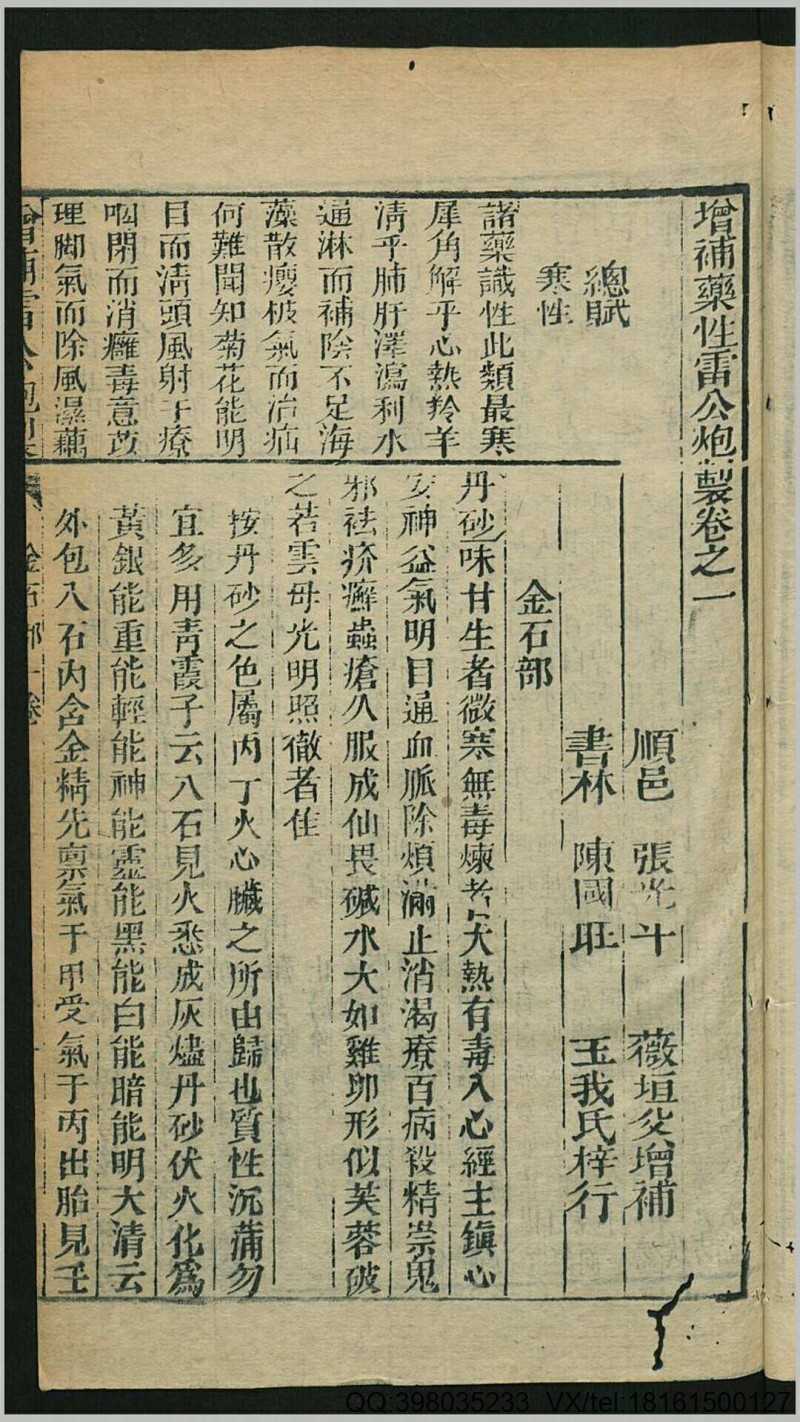 增補藥性雷公炮製卷之一
順邑　張光斗　薇垣父增補
書林　陳國旺　玉我氏梓行
總賦
寒性
諸藥識性此類最寒
犀角解乎心熱羚羊
清乎肺肝澤瀉利水
通淋而補陰不足海
藻散癭破氣而治疝
何難聞知菊花能明
目而淸頭風射干療
咽閉而消癰毒薏苡
理脚氣而除風濕藕
金石部
丹砂味甘生者微寒無毒煉者大熱有毒入心經主鎭心
安神益氣明目通血脈除煩滿止消渴療百病殺精祟鬼
邪祛疥癬蟲瘡久服成仙畏碱水大如雞卵形似芙蓉破
之若雲母光明照徹者佳
按丹砂之色屬丙丁火心臟之所由歸也質性沉滯勿
宜多用靑霞子云八石見火悉成灰燼丹砂伏火化爲
黃銀能重能輕能神能靈能黑能白能暗能明大清云
外包八石內含金精先禀氣于甲受氣于丙出胎見壬
金石部一卷
QQ:398035233 VX/tel:18161500127